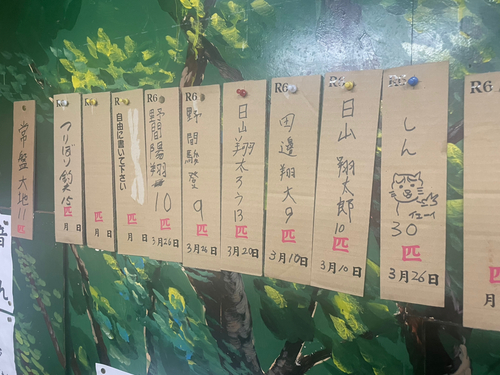 R6
しん
イェー
30
匹
3月26日
R6
日山 翔太郎
10
匹
3月10日
R6
田邊翔大
9
匹
3月10日
日山翔太ろう
13
匹
3月20日
R6
野間
登
9
匹
3月26日
R6
野間陽翔
10
匹
3月26日
R
自由に書いて下さい
匹
月 日
匹
月 日
つりぼり
15
匹
月 日
常盤大地
11
匹
R6
匹
月